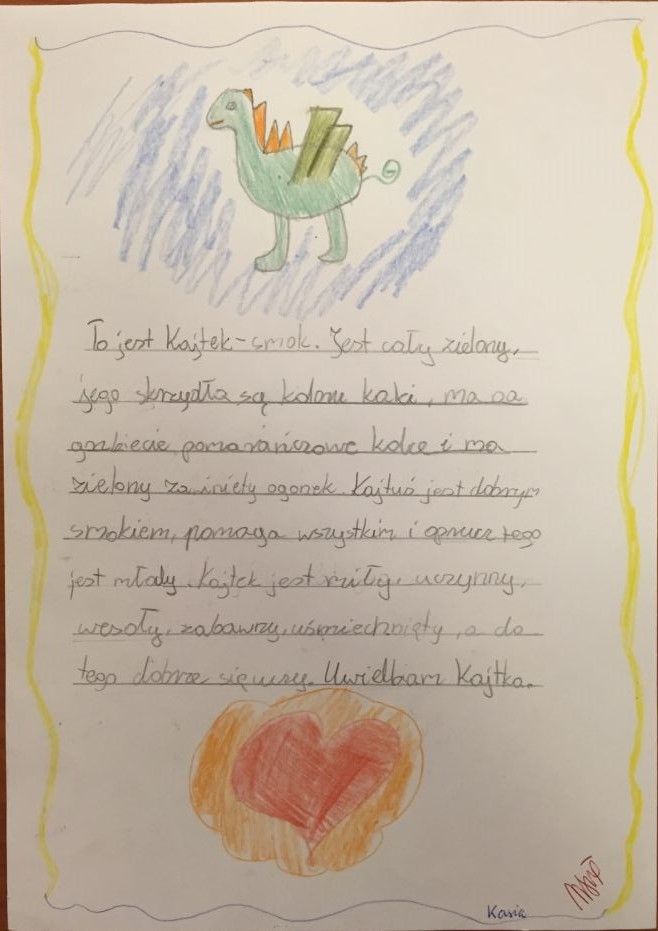 To jest Kajtek-smok. Jest cały zielony,
jego skrzydła są koloru kaki, ma na
grzbiecie pomarańczowe kolce i ma
zielony zawinięty ogonek. Kajtuś jest dobrym
smokiem, pomaga wszystkim i oprucz tego
jest młody. Kajtek jest miły, uczynny,
wesoły, zabawny, uśmiechnięty, a do
tego dobrze się uczy. Uwielbiam Kajtka.
Kasia